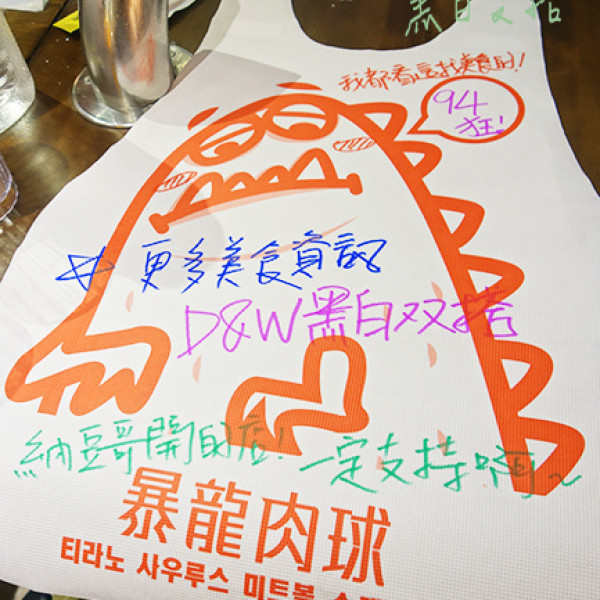 黑白双搭
我都看這找美食的!
94
狂!
# 更多美食資訊
D&W黑白双搭
納豆哥開的店! 一定支持啊~
暴龍肉球
티라노 사우루스 미트볼